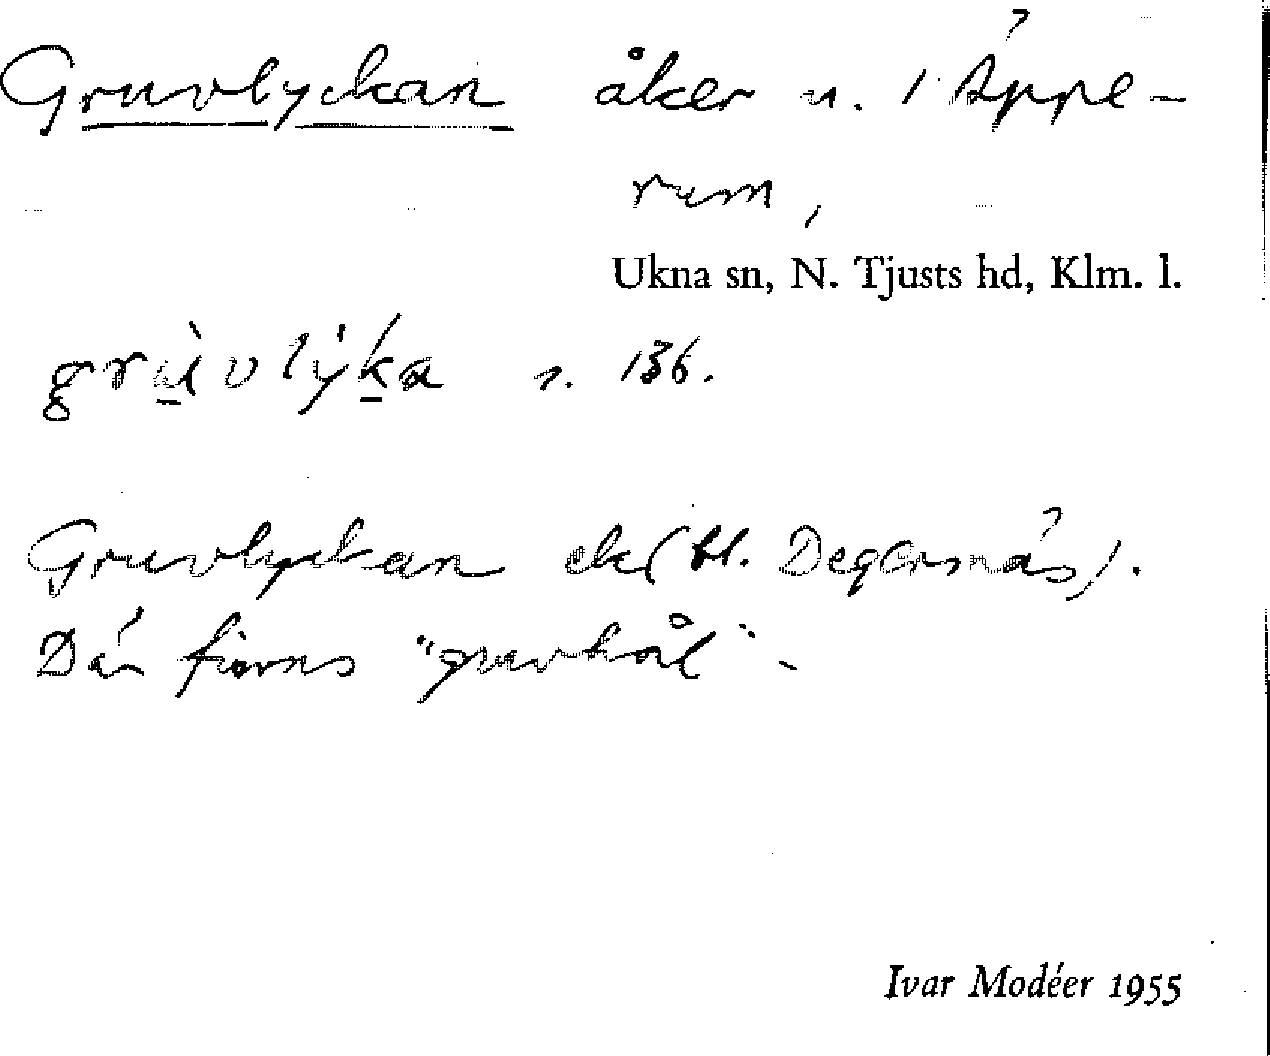 Gruvlyckan åker u. 1 Äppe-
rum,
Ukna sn, N. Tjusts hd, Klm. l.
grùvlýka s. 136.
Gruvlyckan ek (bl. Degernäs).
Där finns "gruvhål".
Ivar Modéer 1955